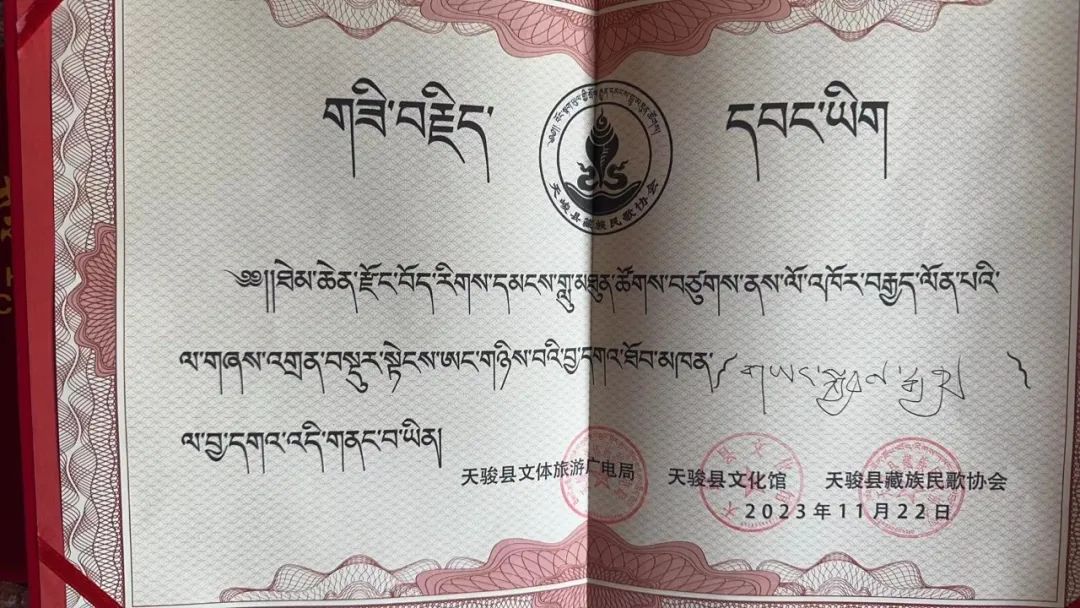 གཟི་བརྗིད་ དབང་ཡིག
天峻县藏族民歌协会
༄༅།།ཐེམ་ཆེན་རྫོང་བོད་རིགས་དམངས་གླུ་མཐུན་ཚོགས་བཙུགས་ནས་ལོ་འཁོར་བརྒྱད་ལོན་པའི་
ལ་གཞས་འགྲན་བསྡུར་སྟེངས་ཨང་གཉིས་བའི་བྱ་དགའ་ཐོབ་མཁན་
ལ་བྱ་དགའ་འདི་གནང་བ་ཡིན།
天峻县文体旅游广电局 天峻县文化馆 天峻县藏族民歌协会
2023年11月22日